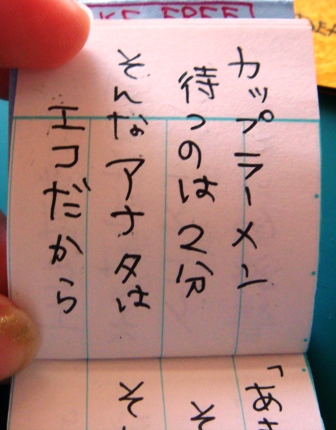 カップラーメン
待つのは2分
そんなアナタは
エコだから
「あ
そ
そ